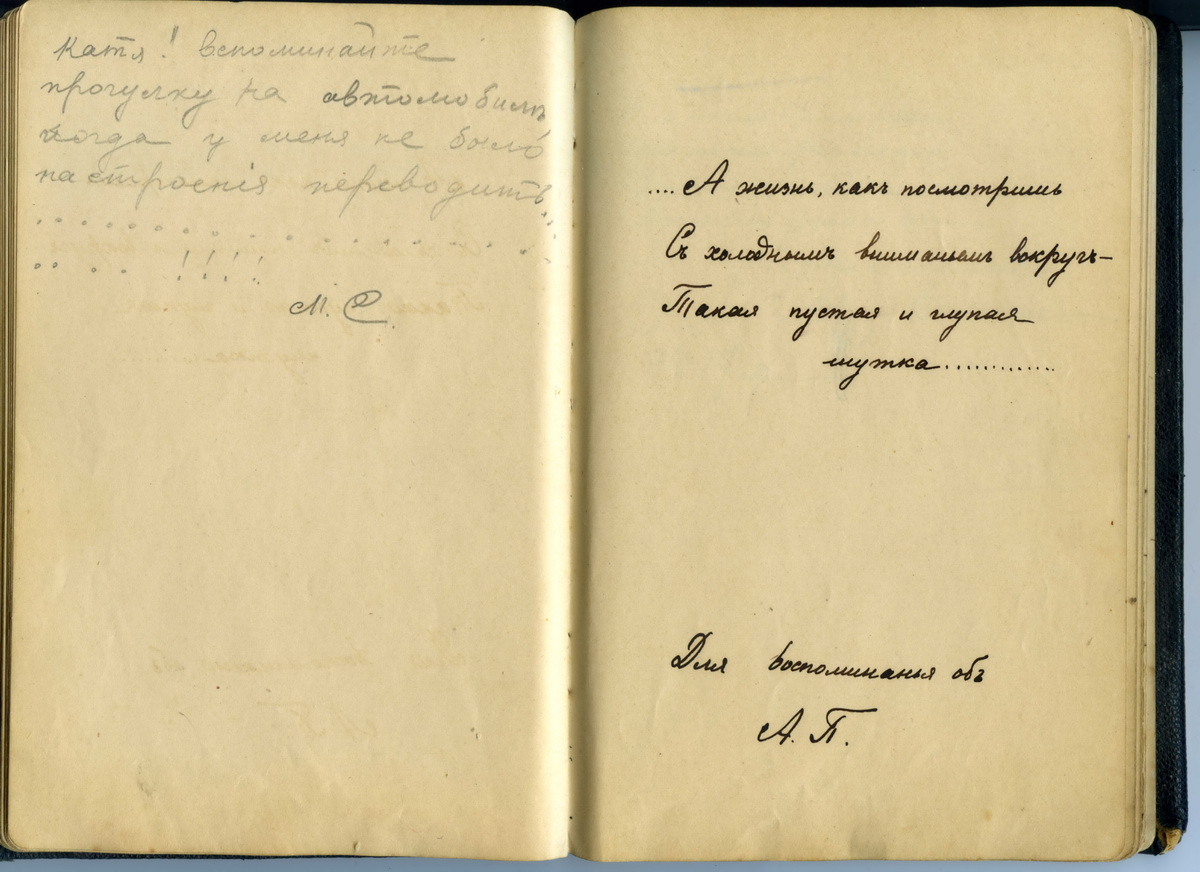 Катя! вспоминайте
прогулку на автомобилѣ
когда у меня не было
настроенія переводить..
. . . . . . . . . . . . . . .
. . . . . ! ! ! !
М. С.
....А жизнь, какъ посмотришь
Съ холоднымъ вниманьемъ вокругъ—
Такая пустая и глупая
шутка............
Для воспоминанья объ
А. П.